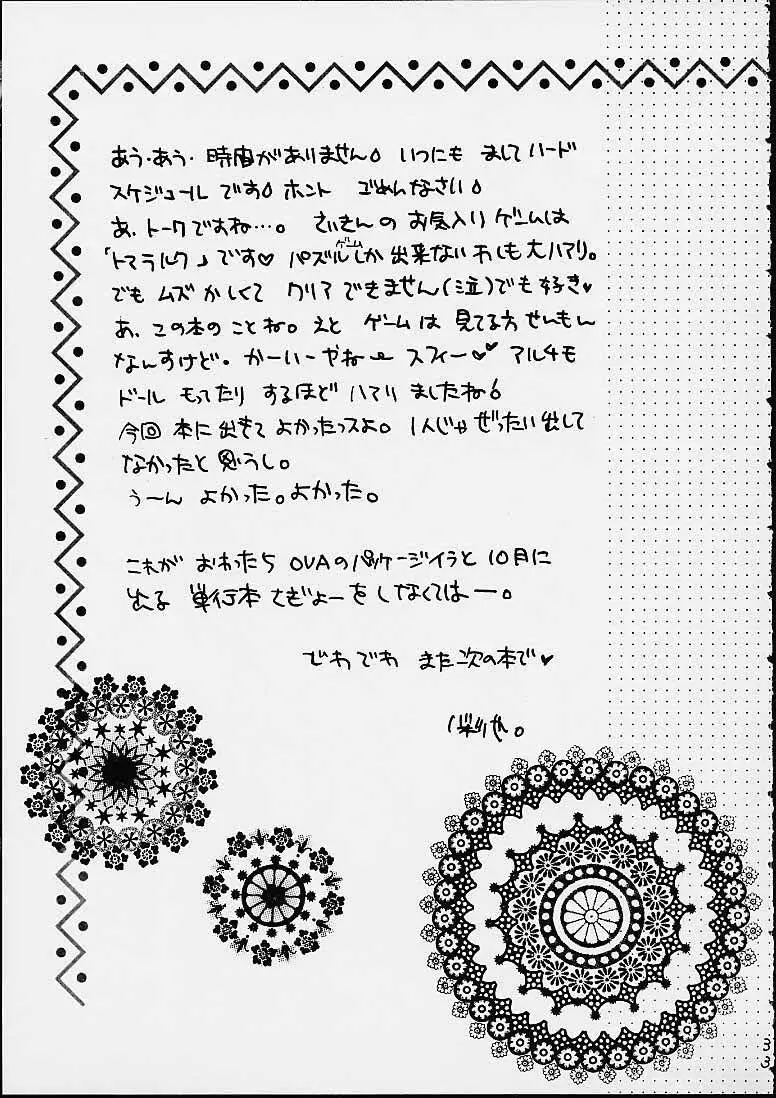 あう・あう・時間がありません。いつにも ましてハード
スケジュール です。ホント ごめんなさい。
あ、トークですね…。 さいきんの お気入りゲームは
「トマラルク」です♡ パズルしか出来ないわしも大ハマリ。
ゲーム
でも ムズかしくて クリアできません(泣)でも好き♥
あ、この本のことね。えと ゲームは 見てる方せんもん
なんすけど。かーいーやね〜 スフィー♥♥ アルチモ
ドール もってたり するほど ハマリ ましたね。
今回 本に出きて よかったっスよ。1人じゃ ぜったい出して
なかったと思うし。
うーん よかった。よかった。
これが おわったら OVAのパッケージイラと 10月に
出る 単行本 さぎょーを しなくてはー。
でわでわ また次の本で♥
33